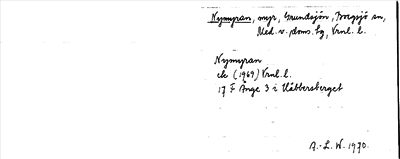 Nymyran, myr, Grundsjön, Borgsjö sn,
Med. v. doms. hg, Vrnl. l.
Nymyran
ek (1969) Vrnl. l.
17 F Ånge 3 i Käbbersberget
A.-L. W. 1970.